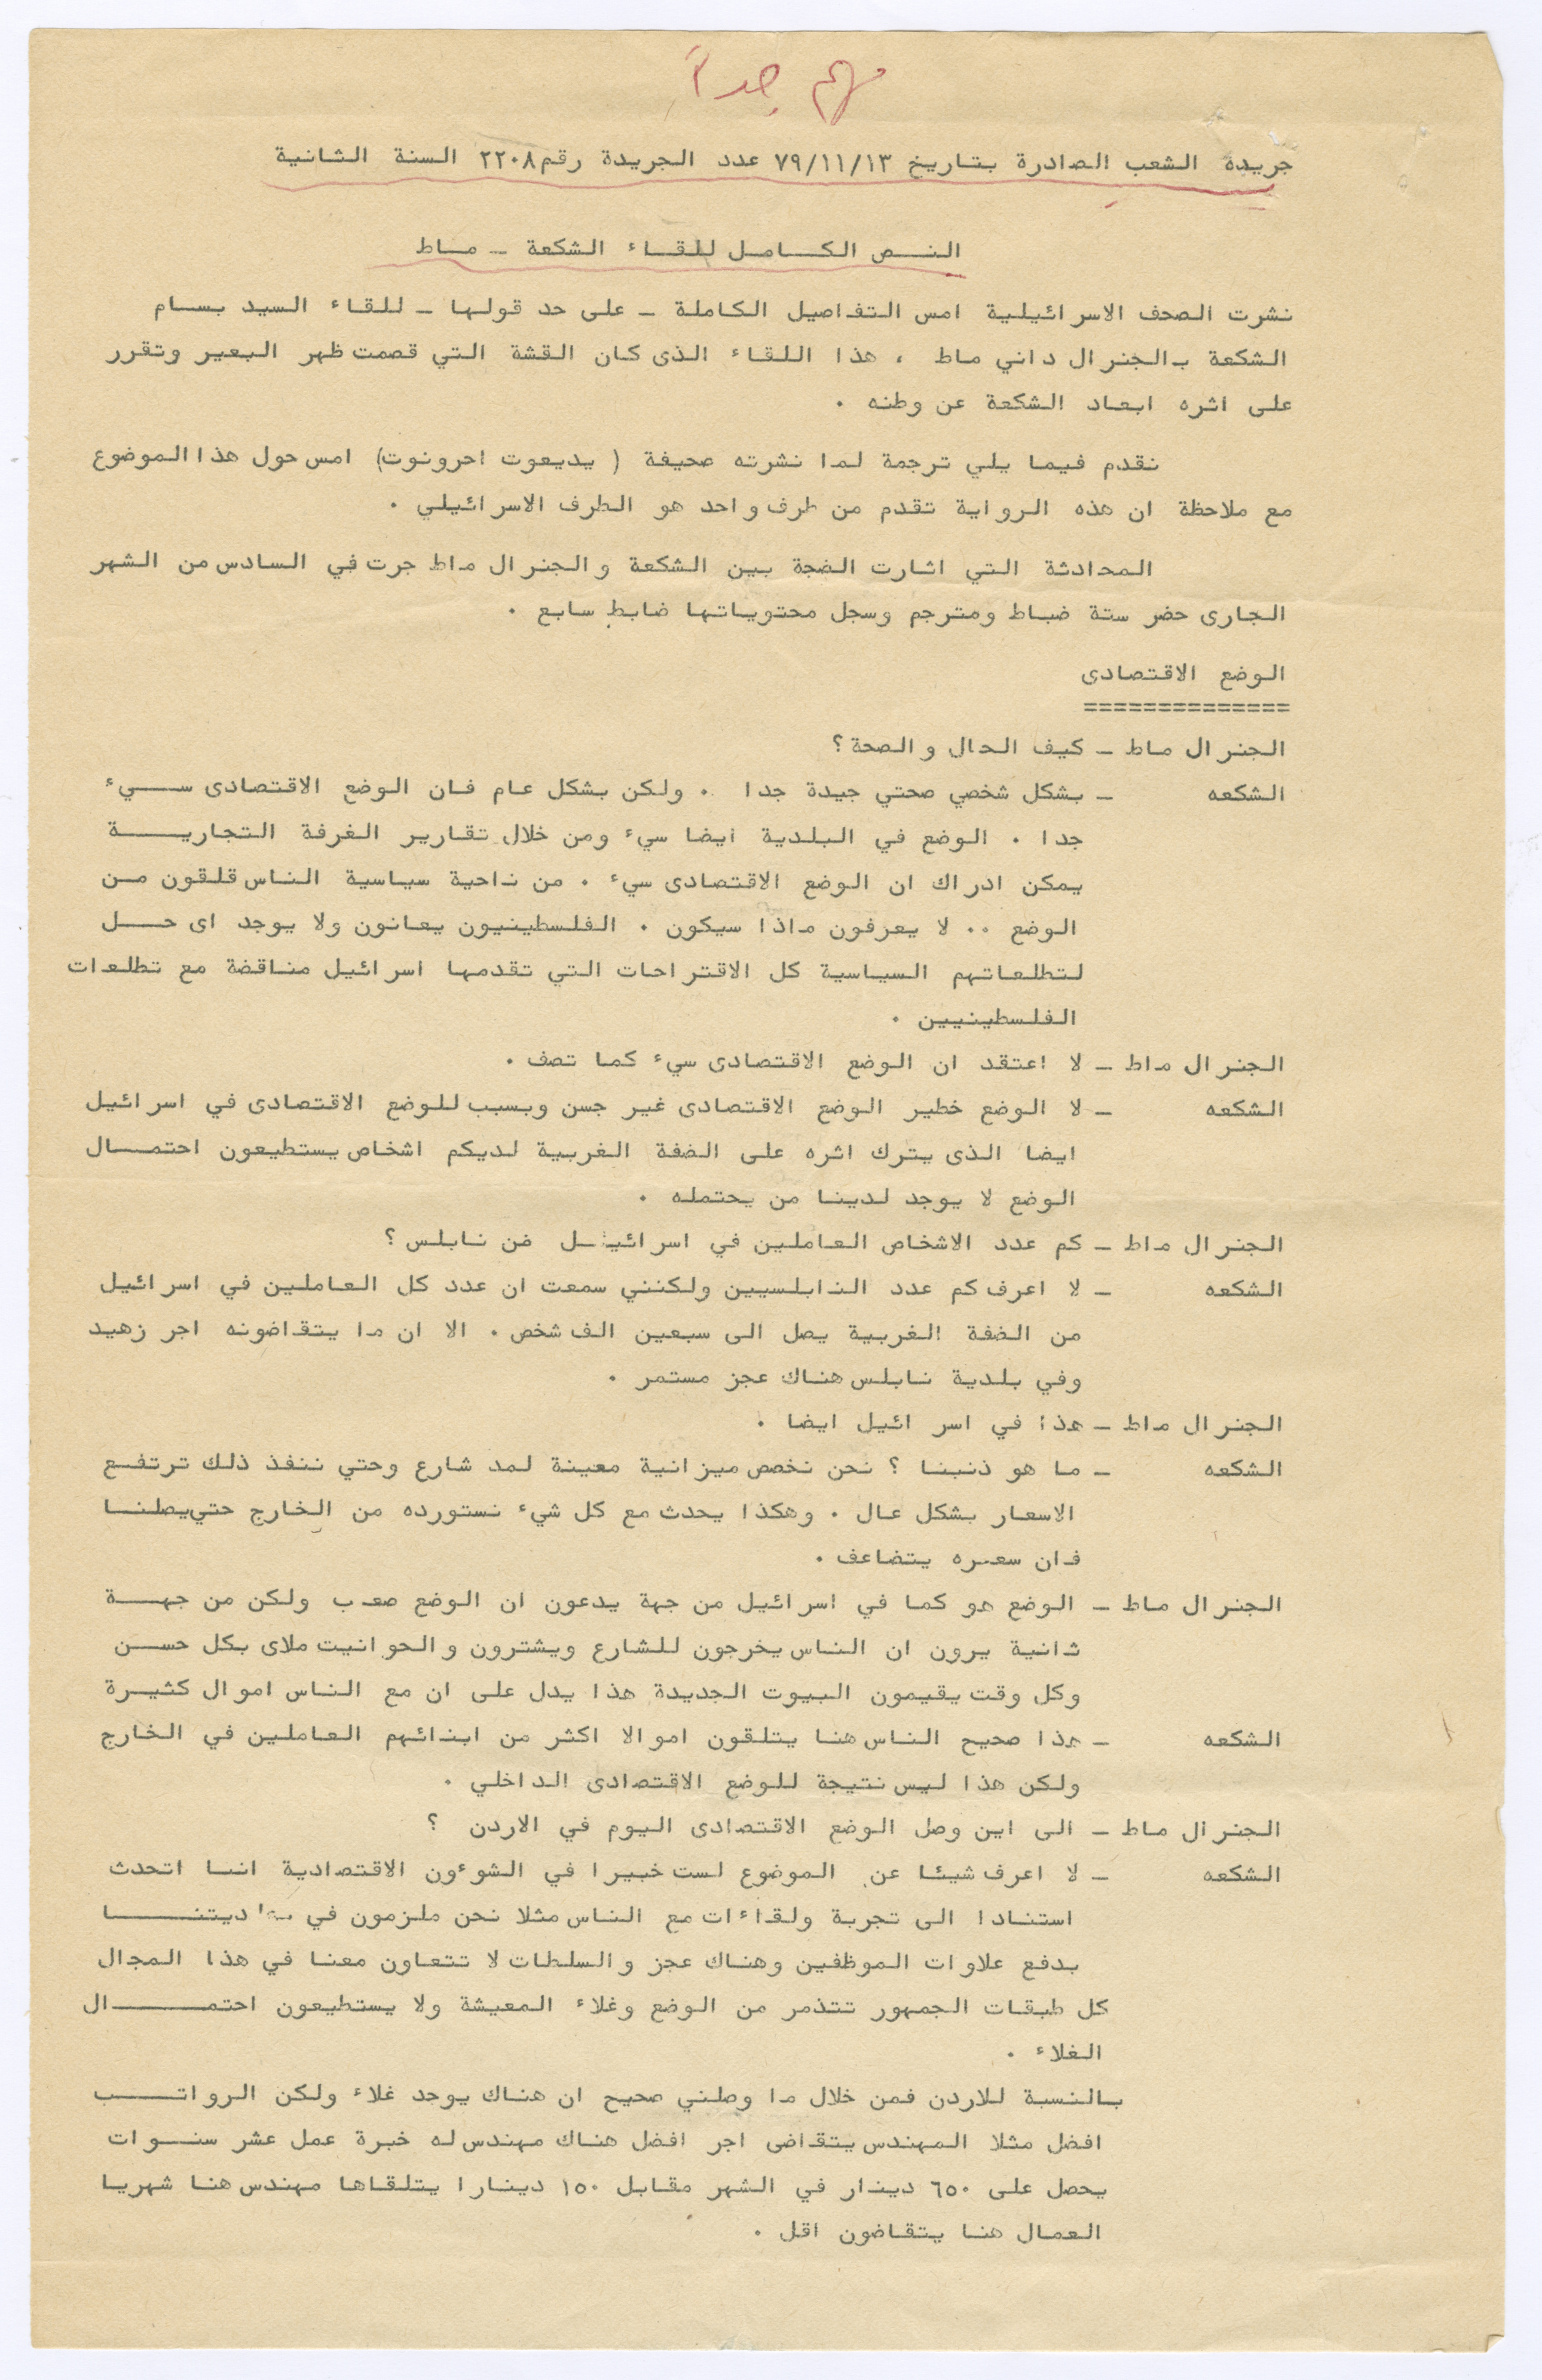 مهم جداً
جريدة الشعب الصادرة بتاريخ ٧٩/١١/١٣ عدد الجريدة رقم ٢٢٠٨ السنة الثانية
النص الكامل للقاء الشكعة ـ ماط
نشرت الصحف الاسرائيلية امس التفاصيل الكاملة ـ على حد قولها ـ للقاء السيد بسام
الشكعة بالجنرال داني ماط ، هذا اللقاء الذى كان القشة التي قصمت ظهر البعير وتقرر
على اثره ابعاد الشكعة عن وطنه ٠
نقدم فيما يلي ترجمة لما نشرته صحيفة ( يديعوت احرونوت) امس حول هذا الموضوع
مع ملاحظة ان هذه الرواية تقدم من طرف واحد هو الطرف الاسرائيلي ٠
المحادثة التي اثارت الضجة بين الشكعة والجنرال ماط جرت في السادس من الشهر
الجارى حضر ستة ضباط ومترجم وسجل محتوياتها ضابط سابع ٠
الوضع الاقتصادى
==============
الجنرال ماط ـ كيف الحال والصحة ؟
الشكعه ـ بشكل شخصي صحتي جيدة جدا ٠ ولكن بشكل عام فان الوضع الاقتصادى سيء
جدا ٠ الوضع في البلدية ايضا سيء ومن خلال تقارير الغرفة التجارية
يمكن ادراك ان الوضع الاقتصادى سيء ٠ من ناحية سياسية الناس قلقون من
الوضع ٠٠ لا يعرفون ماذا سيكون ٠ الفلسطينيون يعانون ولا يوجد اى حل
لتطلعاتهم السياسية كل الاقتراحات التي تقدمها اسرائيل مناقضة مع تطلعات
الفلسطينيين ٠
الجنرال ماط ـ لا اعتقد ان الوضع الاقتصادى سيء كما تصف ٠
الشكعه ـ لا الوضع خطير الوضع الاقتصادى غير جسن وبسبب للوضع الاقتصادى في اسرائيل
ايضا الذى يترك اثره على الضفة الغربية لديكم اشخاص يستطيعون احتمال
الوضع لا يوجد لدينا من يحتمله ٠
الجنرال ماط ـ كم عدد الاشخاص العاملين في اسرائيل من نابلس ؟
الشكعه ـ لا اعرف كم عدد النابلسيين ولكنني سمعت ان عدد كل العاملين في اسرائيل
من الضفة الغربية يصل الى سبعين الف شخص ٠ الا ان ما يتقاضونه اجر زهيد
وفي بلدية نابلس هناك عجز مستمر ٠
الجنرال ماط ـ هذا في اسرائيل ايضا ٠
الشكعه ـ ما هو ذنبنا ؟ نحن نخصص ميزانية معينة لمد شارع وحتي ننفذ ذلك ترتفع
الاسعار بشكل عال ٠ وهكذا يحدث مع كل شيء نستورده من الخارج حتي يصلنا
فان سعره يتضاعف ٠
الجنرال ماط ـ الوضع هو كما في اسرائيل من جهة يدعون ان الوضع صعب ولكن من جهة
ثانية يرون ان الناس يخرجون للشارع ويشترون والحوانيت ملاى بكل حسن
وكل وقت يقيمون البيوت الجديدة هذا يدل على ان مع الناس اموال كثيرة
الشكعه ـ هذا صحيح الناس هنا يتلقون اموالا اكثر من ابنائهم العاملين في الخارج
ولكن هذا ليس نتيجة للوضع الاقتصادى الداخلي ٠
الجنرال ماط ـ الى اين وصل الوضع الاقتصادى اليوم في الاردن ؟
الشكعه ـ لا اعرف شيئا عن الموضوع لست خبيرا في الشوءون الاقتصادية انما اتحدث
استنادا الى تجربة ولقاءات مع الناس مثلا نحن ملزمون في
بدفع علاوات الموظفين وهناك عجز والسلطات لا تتعاون معنا في هذا المجال
كل طبقات الجمهور تتذمر من الوضع وغلاء المعيشة ولا يستطيعون احتمال
الغلاء ٠
بالنسبة للاردن فمن خلال ما وصلني صحيح ان هناك يوجد غلاء ولكن الرواتب
افضل مثلا المهندس يتقاضى اجر افضل هناك مهندس له خبرة عمل عشر سنوات
يحصل على ٦٥٠ دينار في الشهر مقابل ١٥٠ دينارا يتلقاها مهندس هنا شهريا
العمال هنا يتقاضون اقل ٠